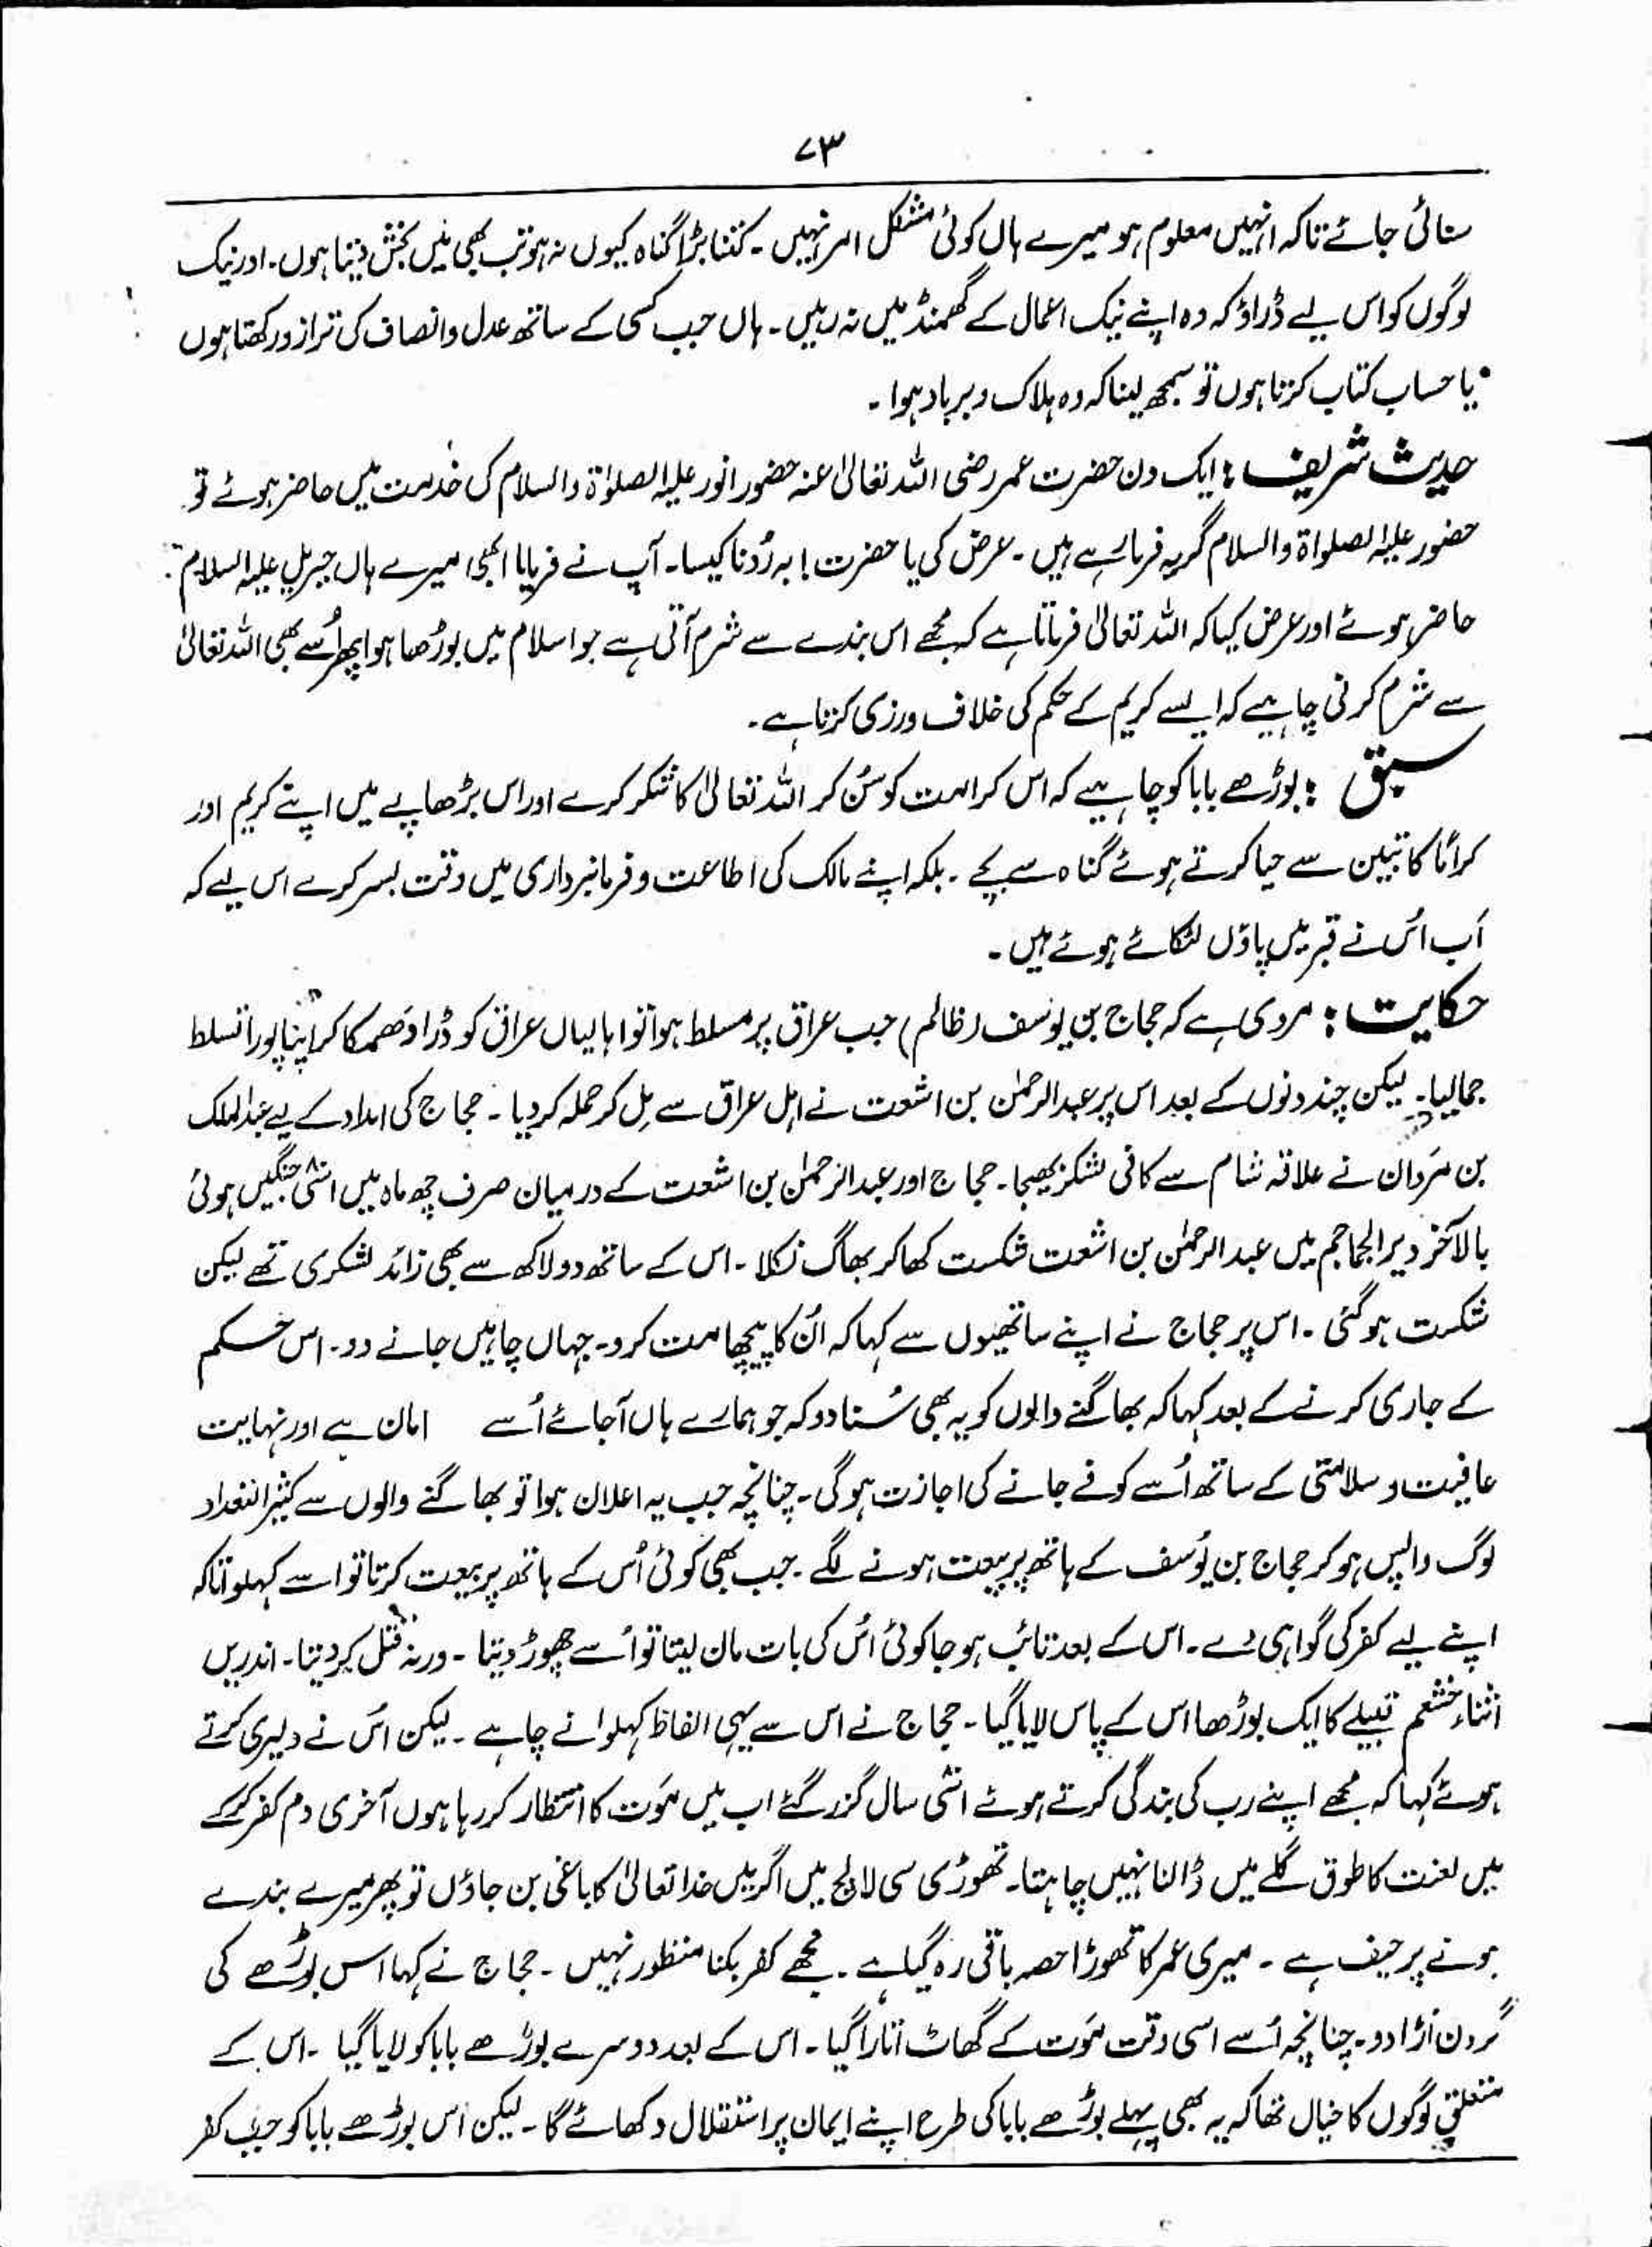 ۷۳
سنائی جائے تاکہ انہیں معلوم ہو میرے ہاں کوئی مشکل امر نہیں ۔ کتنا بڑا گناہ کیوں نہ ہو تب بھی میں بخش دیتا ہوں۔ اور نیک
لوگوں کو اس لیے ڈراؤ کہ وہ اپنے نیک اعمال کے گھمنڈ میں نہ رہیں ۔ ہاں جب کسی کے ساتھ عدل و انصاف کی ترازو رکھتا ہوں
یا حساب کتاب کرتا ہوں تو سمجھ لینا کہ وہ ہلاک و برباد ہوا ۔
حدیث شریف : ایک دن حضرت عمر رضی اللہ تعالیٰ عنہ حضور انور علیہ الصلوٰۃ والسلام کی خدمت میں حاضر ہوئے تو
حضور علیہ الصلواۃ والسلام گریہ فرما رہے ہیں ۔ عرض کی یا حضرت ! یہ رُونا کیسا۔ آپ نے فرمایا ابھی میرے ہاں جبریل علیہ السلام
حاضر ہوئے اور عرض کیا کہ اللہ تعالیٰ فرماتا ہے کہ مجھے اس بندے سے شرم آتی ہے جو اسلام میں بوڑھا ہوا پھر اُسے بھی اللہ تعالیٰ
سے شرم کرنی چاہیے کہ ایسے کریم کے حکم کی خلاف ورزی کرتا ہے ۔
سبق : بوڑھے بابا کو چاہیے کہ اس کرامت کو سُن کر اللہ تعالیٰ کا شکر کرے اور اس بڑھاپے میں اپنے کریم اور
کراماً کاتبین سے حیا کرتے ہوئے گناہ سے بچے ۔ بلکہ اپنے مالک کی اطاعت و فرمانبرداری میں وقت بسر کرے اس لیے کہ
اَب اُس نے قبر میں پاؤں لٹکائے ہوئے ہیں ۔
حکایت : مروی ہے کہ حجاج بن یوسف (ظالم) جب عراق پر مسلط ہوا تو اہالیان عراق کو ڈرا دَھمکا کر اپنا پورا تسلط
جما لیا۔ لیکن چند دنوں کے بعد اس پر عبدالرحمٰن بن اشعت نے اہل عراق سے مِل کر حملہ کر دیا ۔ حجاج کی امداد کے لیے عبدالملک
بن مَروان نے علاقہ شام سے کافی لشکر بھیجا۔ حجاج اور عبدالرحمٰن بن اشعت کے درمیان صرف چھ ماہ میں اسّی ۸۰ جنگیں ہوئی
بالآخر دیر الجماجم میں عبدالرحمٰن بن اشعت شکست کھا کر بھاگ نکلا ۔ اس کے ساتھ دو لاکھ سے بھی زائد لشکری تھے لیکن
شکست ہو گئی ۔ اس پر حجاج نے اپنے ساتھیوں سے کہا کہ اُن کا پیچھا مت کرو۔ جہاں چاہیں جانے دو۔ اس حکم
کے جاری کرنے کے بعد کہا کہ بھاگنے والوں کو یہ بھی سُنا دو کہ جو ہمارے ہاں آ جائے اُسے امان ہے اور نہایت
عافیت و سلامتی کے ساتھ اُسے کوفے جانے کی اجازت ہوگی۔ چنانچہ جب یہ اعلان ہوا تو بھاگنے والوں سے کثیر التعداد
لوگ واپس ہو کر حجاج بن یوُسف کے ہاتھ پر بیعت ہونے لگے ۔ جب بھی کوئی اُس کے ہاتھ پر بیعت کرتا تو اسے کہلواتا کہ
اپنے لیے کفر کی گواہی دے ۔ اس کے بعد تائب ہو جا کوئی اُس کی بات مان لیتا تو اُسے چھوڑ دیتا ۔ ورنہ قتل کر دیتا ۔ اندریں
اثناء خثعم قبیلے کا ایک بوڑھا اس کے پاس لایا گیا ۔ حجاج نے اس سے یہی الفاظ کہلوانے چاہے ۔ لیکن اُس نے دلیری کرتے
ہوئے کہا کہ مجھے اپنے رب کی بندگی کرتے ہوئے اسّی سال گزر گئے اب میں مَوت کا انتظار کر رہا ہوں آخری دم کفر کرکے
میں لعنت کا طوق گلے میں ڈالنا نہیں چاہتا۔ تھوڑی سی لالچ میں اگر میں خدا تعالیٰ کا باغی بن جاؤں تو پھر میرے بندے
ہونے پر حیف ہے ۔ میری عمر کا تھوڑا حصہ باقی رہ گیا ہے ۔ مجھے کفر بکنا منظور نہیں ۔ حجاج نے کہا اس بوڑھے کی
گردن اُڑا دو۔ چنانچہ اُسے اسی وقت مَوت کے گھاٹ اتارا گیا ۔ اس کے بعد دوسرے بوڑھے بابا کو لایا گیا ۔ اس کے
متعلق لوگوں کا خیال تھا کہ یہ بھی پہلے بوڑھے بابا کی طرح اپنے ایمان پر استقلال دکھائے گا ۔ لیکن اُس بوڑھے بابا کو جب کفر